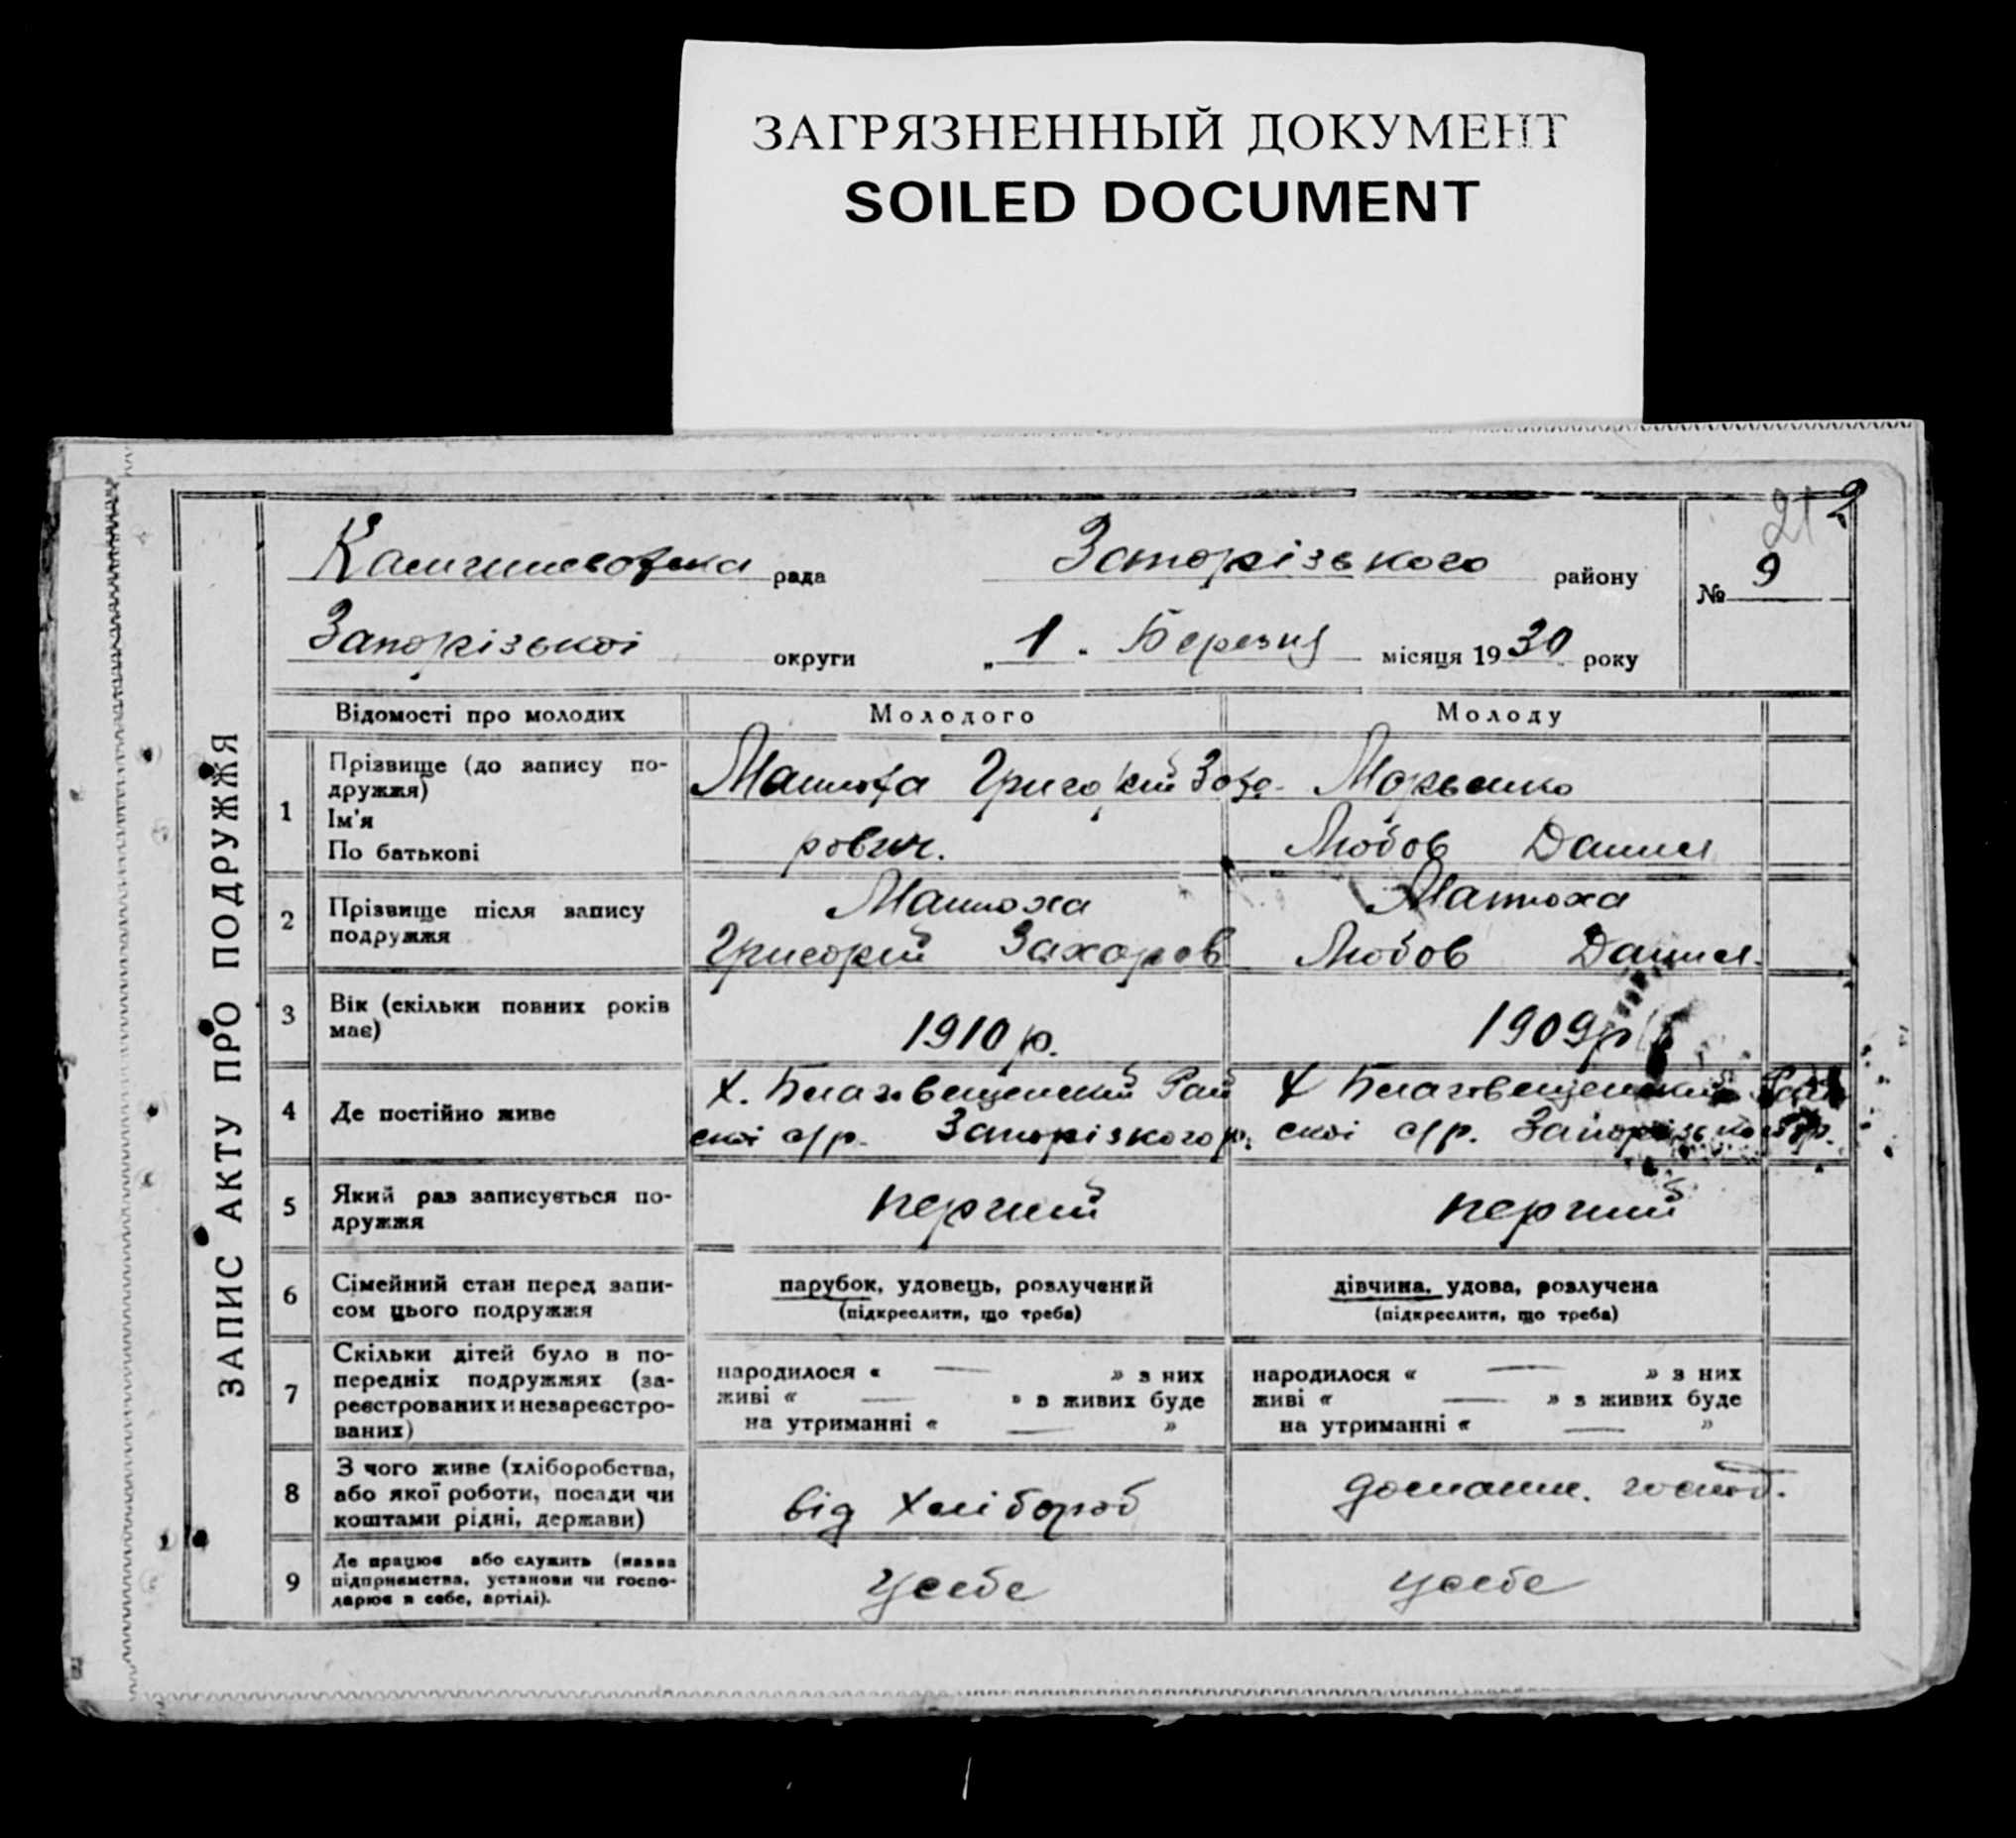 ЗАГРЯЗНЕННЫЙ ДОКУМЕНТ
SOILED DOCUMENT
ЗАПИС АКТУ ПРО ПОДРУЖЖЯ
21 2
рада Запорізького району № 9
Запорізької округи „ 1 " Березня місяця 19 30 року
Відомості про молодих Молодого Молоду
1 Прізвище (до запису по-
дружжя)
Ім'я
По батькові
Матюха Григорій Заха-
рович.
Марченко
Любов Данил
2 Прізвище після запису
подружжя
Матюха
Григорій Захаров
Матюха
Любов Данил.
3 Вік (скільки повних років
має)
1910 р.
1909 р
4 Де постійно живе
х. Благовещенский Рай
скої с/р. Запорізкого р.
х Благовещенский Рай
скої с/р. Запорізького р.
5 Який раз записується по-
дружжя
перший
перший
6 Сімейний стан перед запи-
сом цього подружжя
парубок, удовець, розлучений
(підкреслити, що треба)
дівчина, удова, розлучена
(підкреслити, що треба)
7 Скільки дітей було в по-
передніх подружжях (за-
реєстрованих и незареєстро-
ваних)
народилося « — » з них
живі « — » в живих буде
на утриманні « — »
народилося « — » з них
живі « — » з живих буде
на утриманні « — »
8 З чого живе (хліборобства,
або якої роботи, посади чи
коштами рідні, держави)
від хлібороб
домашн. господ.
9 Де працює або служить (назва
підприємства, установи чи госпо-
дарює в себе, артілі).
усебе
усебе